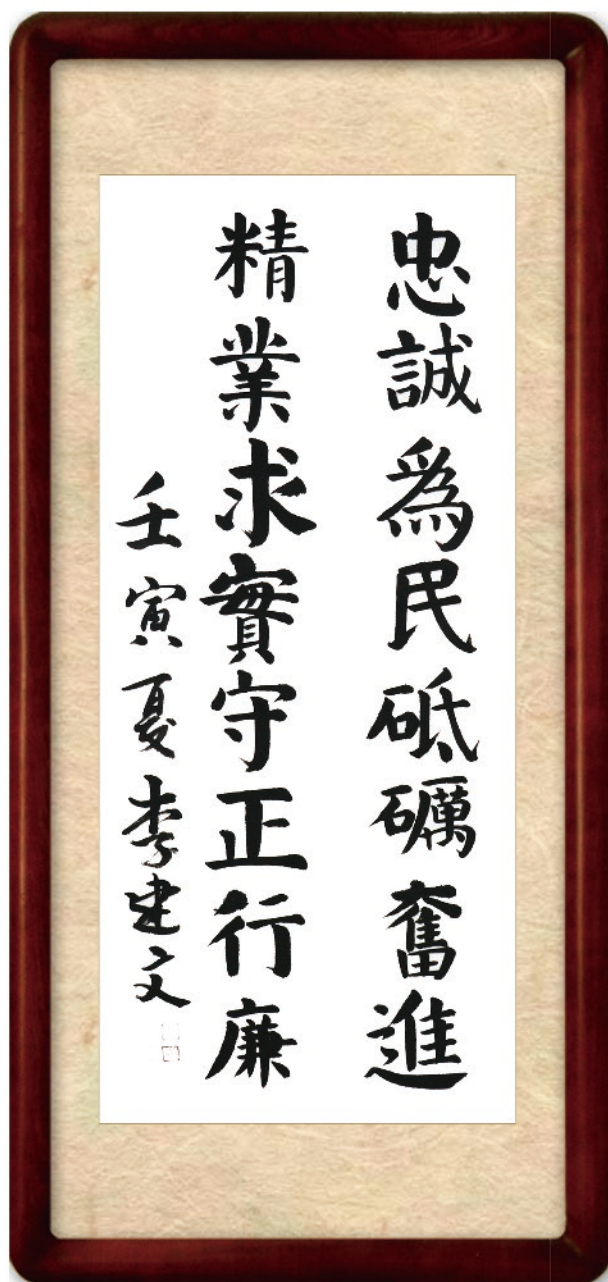 忠誠為民砥礪奮進
精業求實守正行廉
壬寅夏李建文